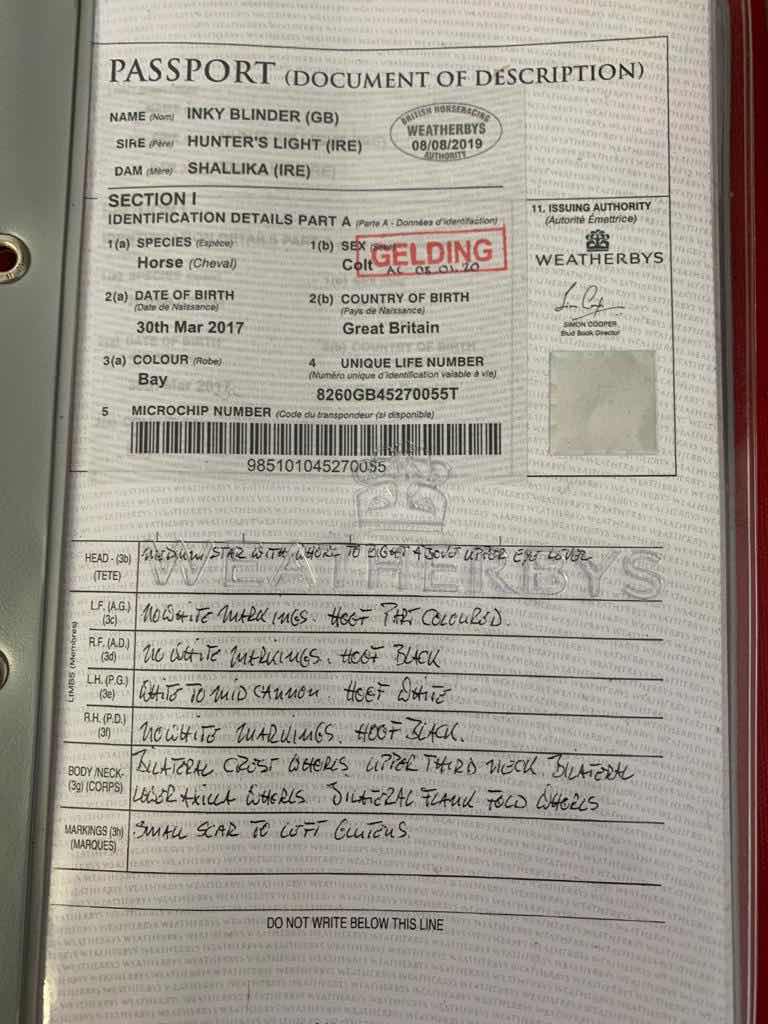 PASSPORT (DOCUMENT OF DESCRIPTION)
NAME (Nom) INKY BLINDER (GB)
SIRE (Père) HUNTER'S LIGHT (IRE)
DAM (Mère) SHALLIKA (IRE)
BRITISH HORSERACING
WEATHERBYS
08/08/2019
AUTHORITY
SECTION I
IDENTIFICATION DETAILS PART A (Parte A - Données d'identifaction)
1(a) SPECIES (Espèce)
Horse (Cheval)
1(b) SEX
Colt
GELDING
AC 08.01.20
2(a) DATE OF BIRTH
(Date de Naissance)
30th Mar 2017
2(b) COUNTRY OF BIRTH
(Pays de Naissance)
Great Britain
3(a) COLOUR (Robe)
Bay
4 UNIQUE LIFE NUMBER
(Numéro unique d'identification valable à vie)
8260GB45270055T
5 MICROCHIP NUMBER (Code du transpondeur (si disponible)
985101045270055
11. ISSUING AUTHORITY
(Autorité Émettrice)
WEATHERBYS
SIMON COOPER
Stud Book Director
WEATHERBYS
HEAD - (3b)
(TETE)
MEDIUM STAR WITH WHORL TO RIGHT ABOVE UPPER EYE LEVEL
LIMBS (Membres)
L.F. (A.G.)
(3c)
NO WHITE MARKINGS. HOOF PART COLOURED.
R.F. (A.D.)
(3d)
NO WHITE MARKINGS. HOOF BLACK
L.H. (P.G.)
(3e)
WHITE TO MID CANNON. HOOF WHITE
R.H. (P.D.)
(3f)
NO WHITE MARKINGS. HOOF BLACK.
BODY/NECK-
(3g) (CORPS)
BILATERAL CREST WHORLS UPPER THIRD NECK. BILATERAL
LOWER AXILLA WHORLS. BILATERAL FLANK FOLD WHORLS
MARKINGS (3h)
(MARQUES)
SMALL SCAR TO LEFT GLUTEUS.
DO NOT WRITE BELOW THIS LINE